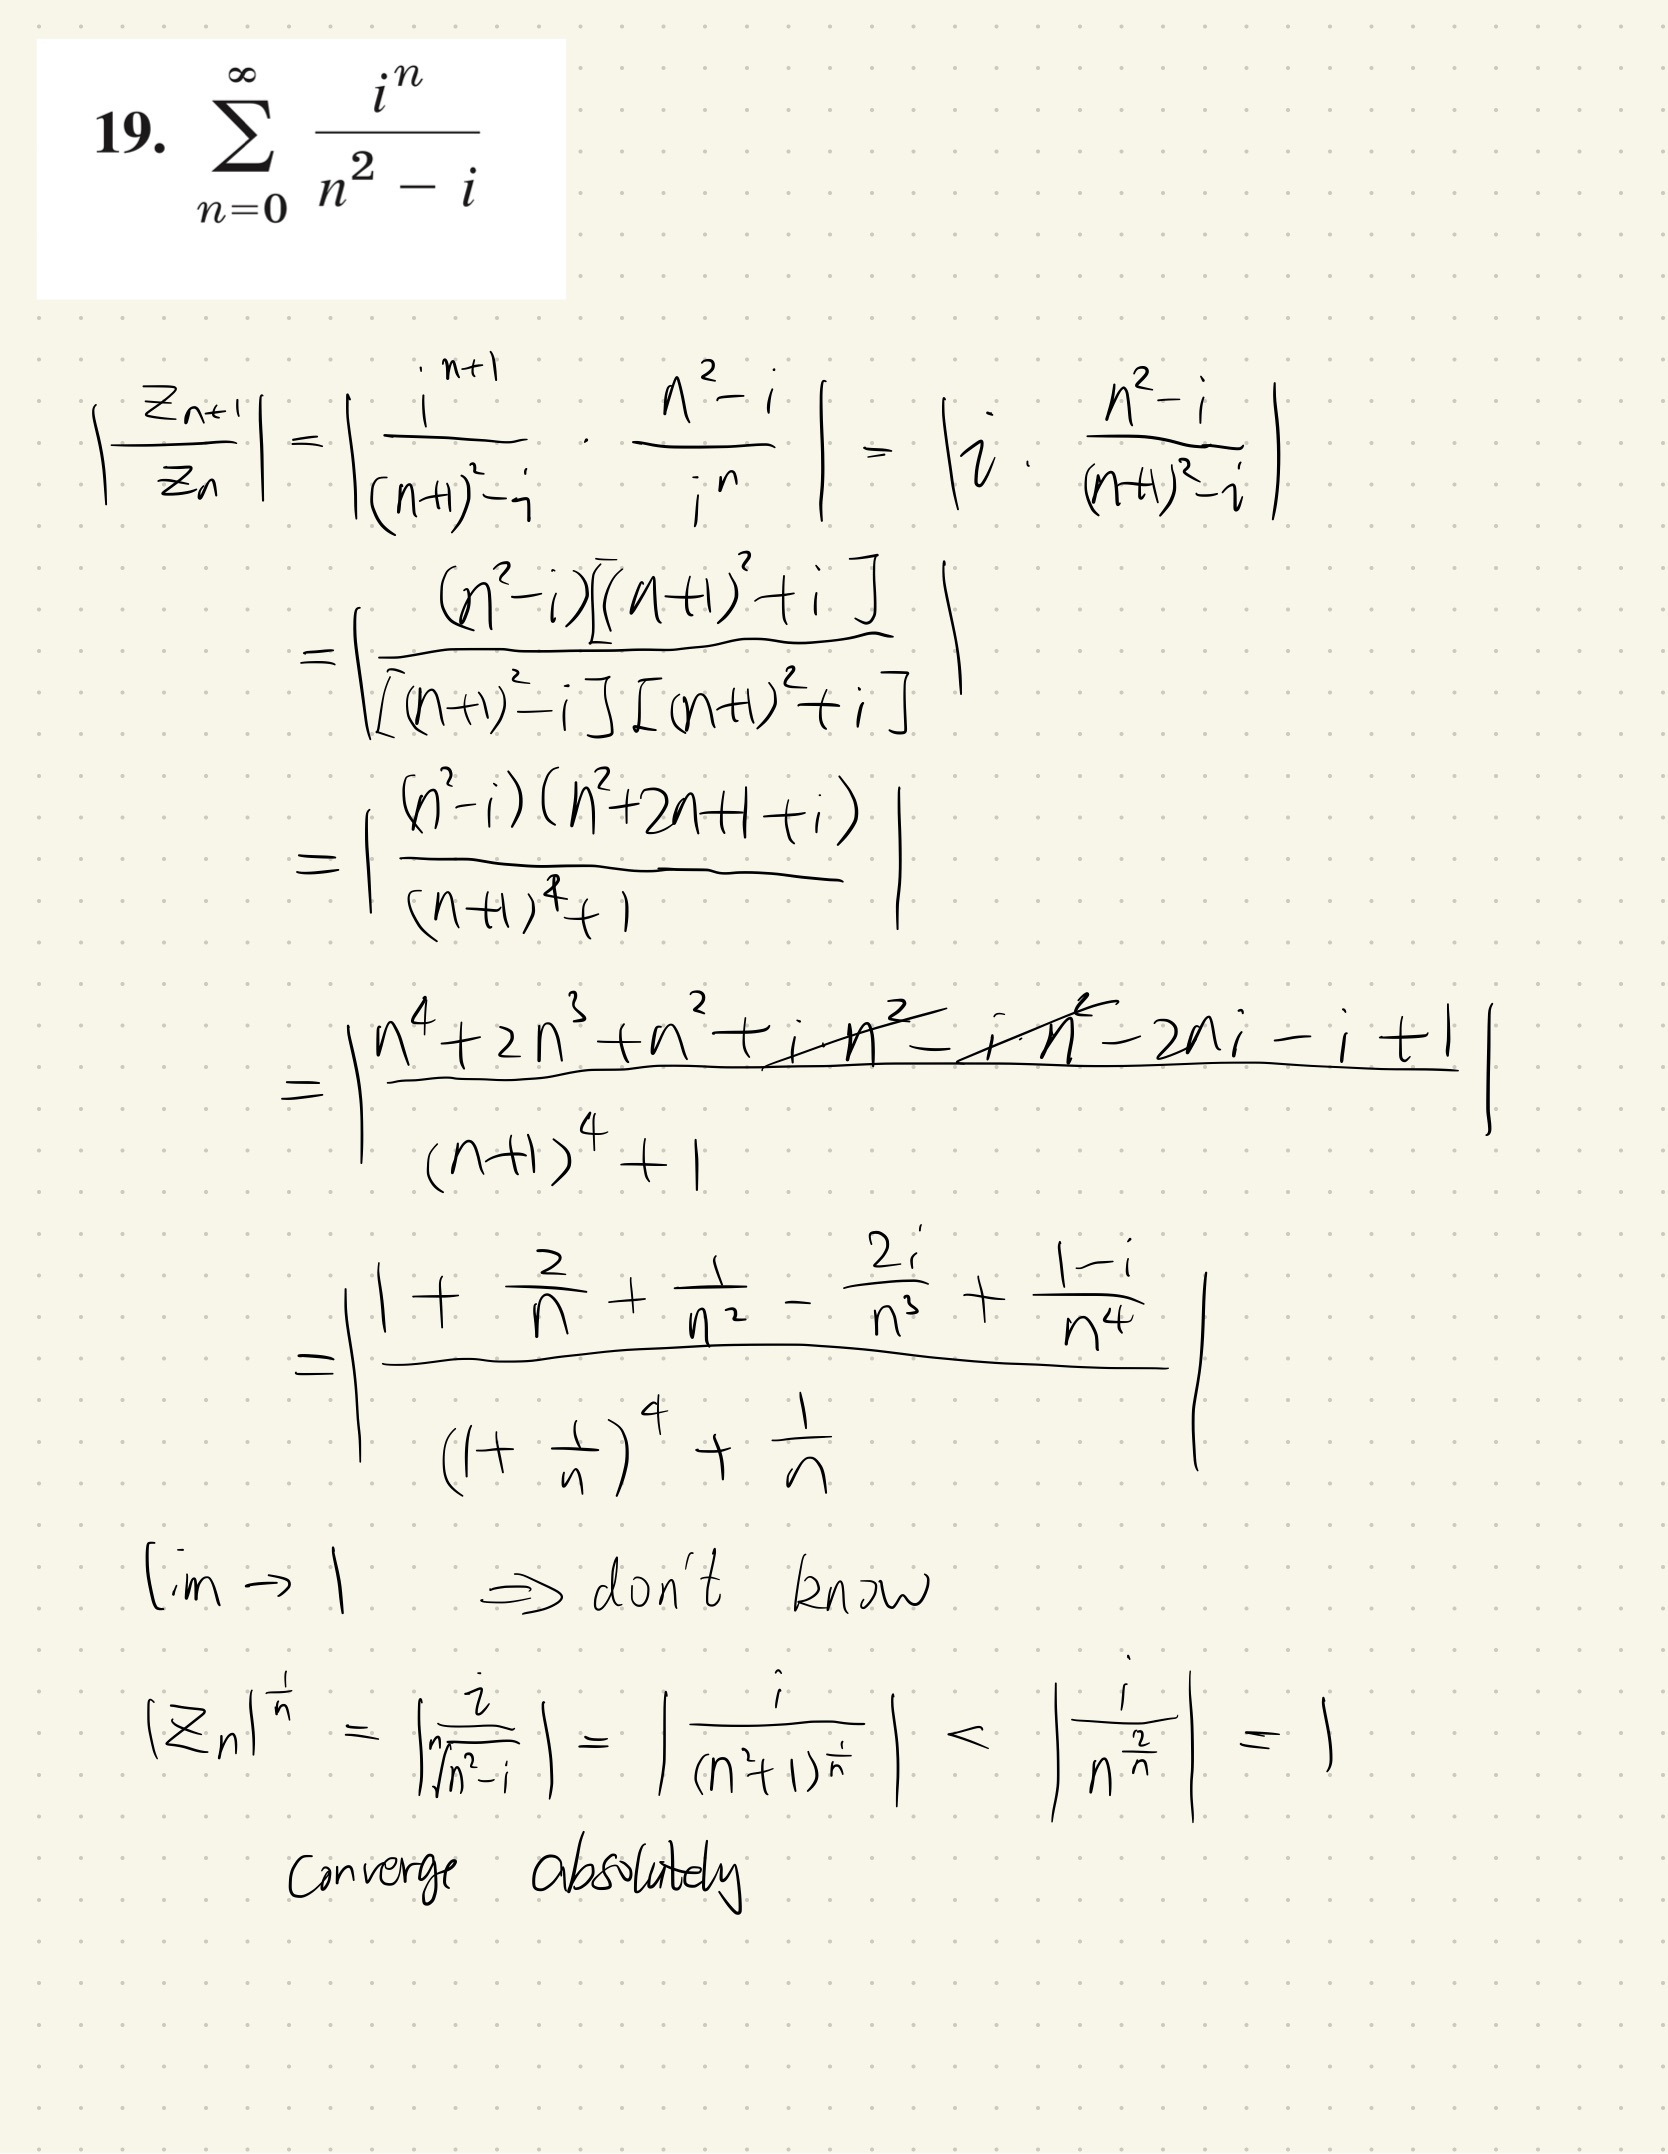 19. \sum_{n=0}^{\infty} \frac{i^n}{n^2 - i}
\left| \frac{z_{n+1}}{z_n} \right| = \left| \frac{i^{n+1}}{(n+1)^2 - i} \cdot \frac{n^2 - i}{i^n} \right| = \left| i \cdot \frac{n^2 - i}{(n+1)^2 - i} \right|
= \left| \frac{(n^2 - i)[(n+1)^2 + i]}{[(n+1)^2 - i][(n+1)^2 + i]} \right|
= \left| \frac{(n^2 - i)(n^2 + 2n + 1 + i)}{(n+1)^4 + 1} \right|
= \left| \frac{n^4 + 2n^3 + n^2 + \cancel{i \cdot n^2} - \cancel{i \cdot n^2} - 2ni - i + 1}{(n+1)^4 + 1} \right|
= \left| \frac{1 + \frac{2}{n} + \frac{1}{n^2} - \frac{2i}{n^3} + \frac{1-i}{n^4}}{(1 + \frac{1}{n})^4 + \frac{1}{n}} \right|
lim → 1 ⇒ don't know
|z_n|^{\frac{1}{n}} = \left| \frac{i}{\sqrt[n]{n^2 - i}} \right| = \left| \frac{i}{(n^2 + 1)^{\frac{1}{n}}} \right| < \left| \frac{i}{n^{\frac{2}{n}}} \right| = 1
converge absolutely